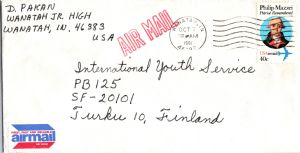 D. PAKAN
WANATAH JR. HIGH
WANATAH, IN. 46383
USA
AIR MAIL
OCT 7
1981
Philip Mazzei
Patriot Remembered
USAirmail
40c
International Youth Service
PB 125
SF-20101
Turku 10, Finland
airmail